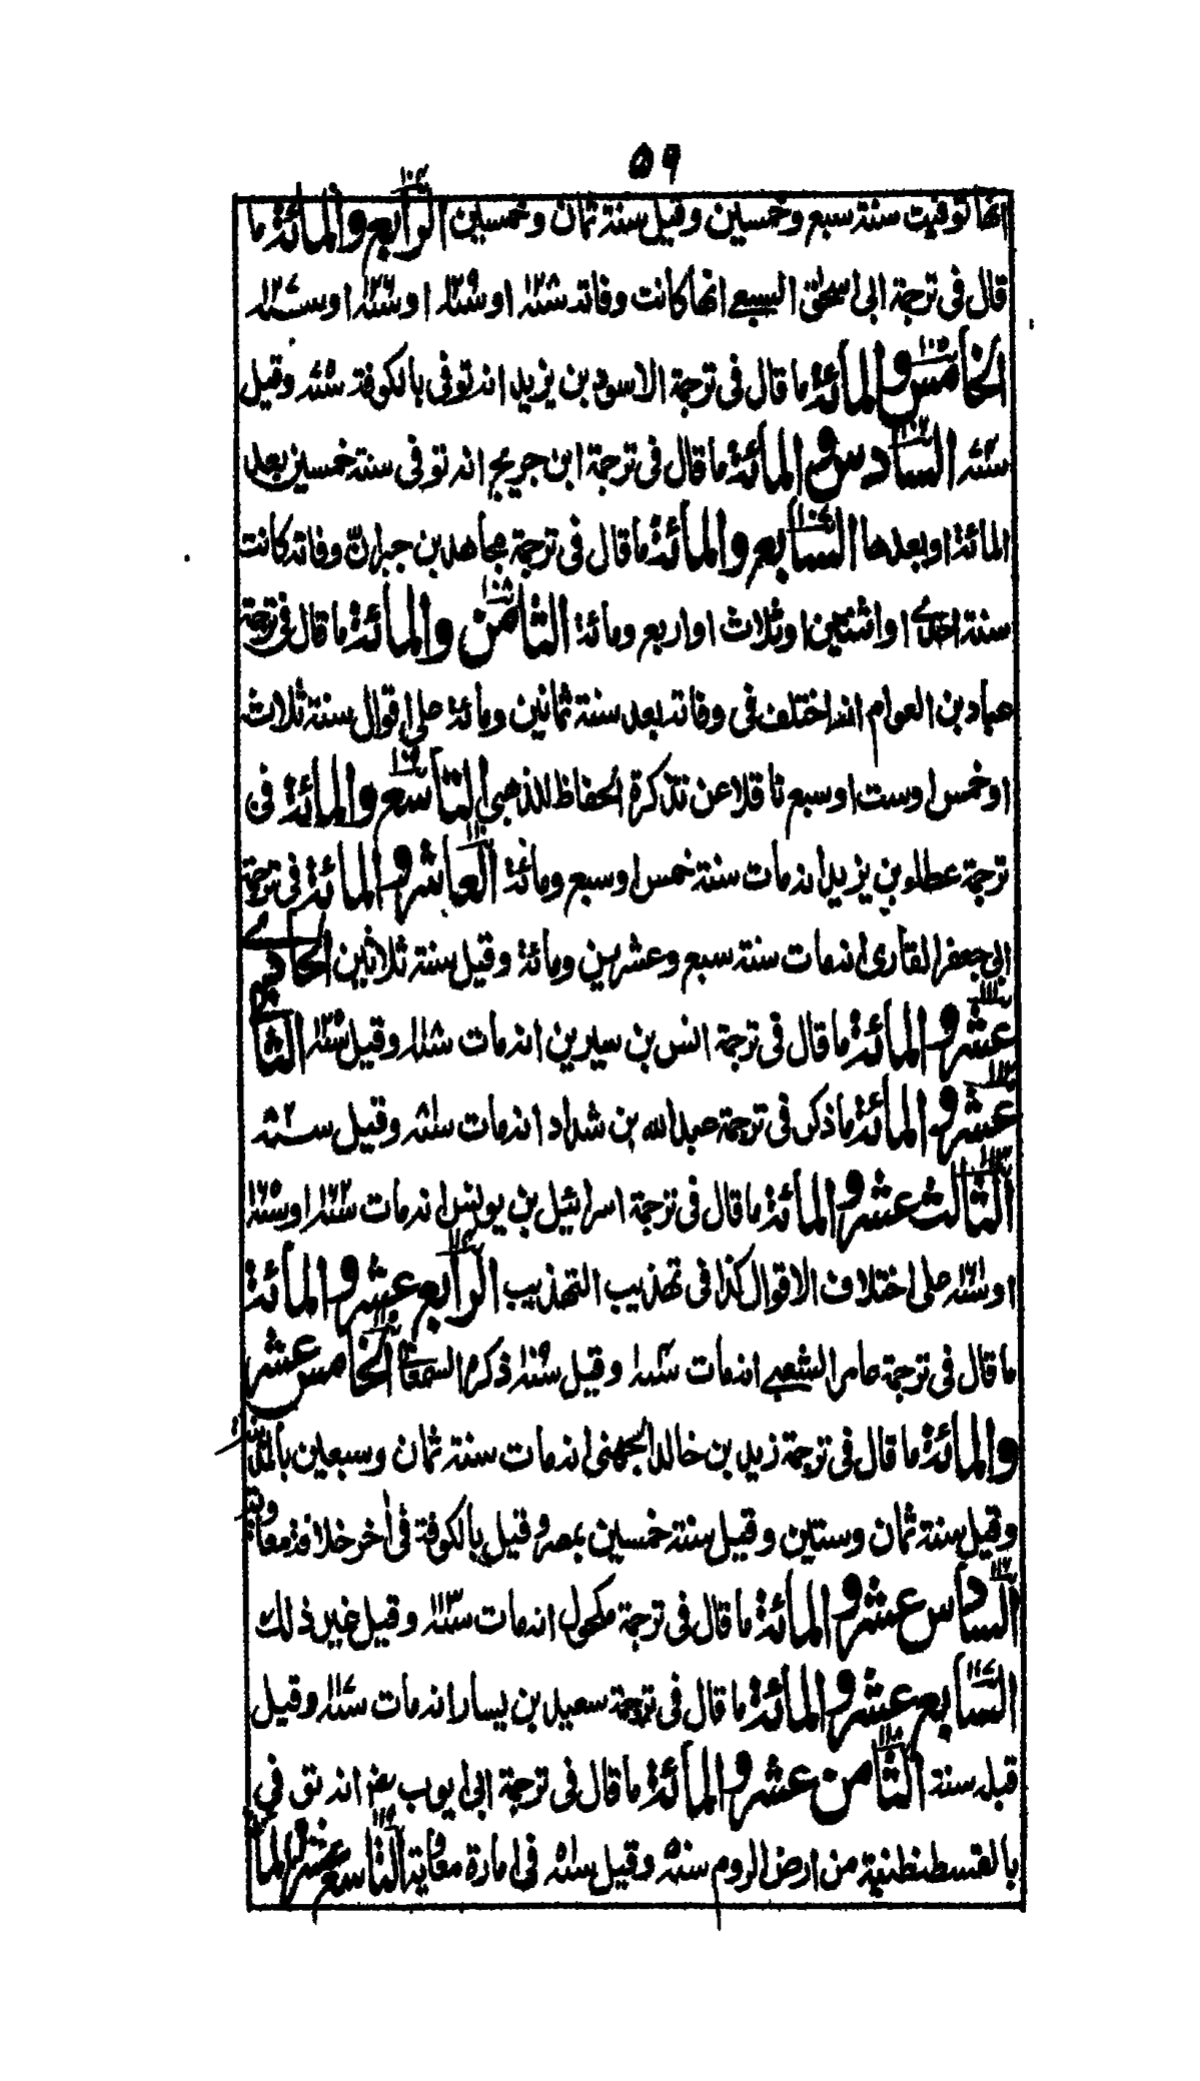 ٥٦
انها توفيت سنة سبع وخمسين وقيل سنة ثمان وخمسين الرابع والمائة ما
قال فى ترجمة ابى اسحٰق السبيعے انها كانت وفاته سنة ١٢٨ او سنة ١٢٩ او سنة ١٢٦ او سنة ١٢٧
الخامس والمائة ما قال فى ترجمة الاسود بن يزيد انه توفى بالكوفة سنة وقيل
سنة السادس والمائة ما قال فى ترجمة ابن جريج انه توفى سنة خمسين بعد
المائة او بعدها السابع والمائة ما قال فى ترجمة مجاهد بن جبر ان وفاته كانت
سنة احدے او اثنتين او ثلاث او اربع ومائة الثامن والمائة ما قال فى ترجمة
عباد بن العوام انه اختلف فى وفاته بعد سنة ثمانين ومائة على اقوال سنة ثلاث
او خمس او ست او سبع ناقلا عن تذكرة الحفاظ للذهبى التاسع والمائة فى
ترجمة عطاء بن يزيد انه مات سنة خمس او سبع ومائة العاشر والمائة فى ترجمة
ابى جعفر القارى انه مات سنة سبع وعشرين ومائة وقيل سنة ثلاثين الحادے
عشر والمائة ما قال فى ترجمة انس بن سيرين انه مات سنة وقيل سنة ١٢٠ الثانى
عشر والمائة ما ذكر فى ترجمة عبد الله بن شداد انه مات سنة وقيل سنة
الثالث عشر والمائة ما قال فى ترجمة اسرائيل بن يونس انه مات سنة ١٦٢ او سنة ١٦٥
او سنة ١٦١ على اختلاف الاقوال كذا فى تهذيب التهذيب الرابع عشر والمائة
ما قال فى ترجمة عامر الشعبے انه مات سنة وقيل سنة ذكره السمعانى الخامس عشر
والمائة ما قال فى ترجمة زيد بن خالد الجهنى انه مات سنة ثمان وسبعين بالمدينة
وقيل سنة ثمان وستين وقيل سنة خمسين بمصر وقيل بالكوفة فى اٰخر خلافة معاوية
السادس عشر والمائة ما قال فى ترجمة مكحول انه مات سنة وقيل غير ذلك
السابع عشر والمائة ما قال فى ترجمة سعيد بن يسار انه مات سنة وقيل
قبله سنة الثامن عشر والمائة ما قال فى ترجمة ابى ايوب انه توفى
بالقسطنطنية من ارض الروم سنة وقيل سنة فى امارة معاوية التاسع عشر والمائة